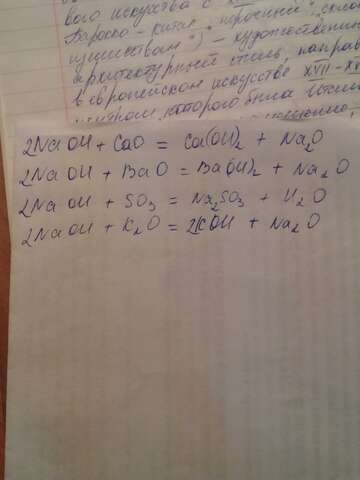 вого искусства с
Барокко - китая "порочный"
) - художественный
архитектурный стиль, направ
в европейском искусстве XVII - XV
центром которого была
2NaOH + CaO = Ca(OH)2 + Na2O
2NaOH + BaO = Ba(OH)2 + Na2O
2NaOH + SO3 = Na2SO3 + H2O
2NaOH + K2O = 2KOH + Na2O